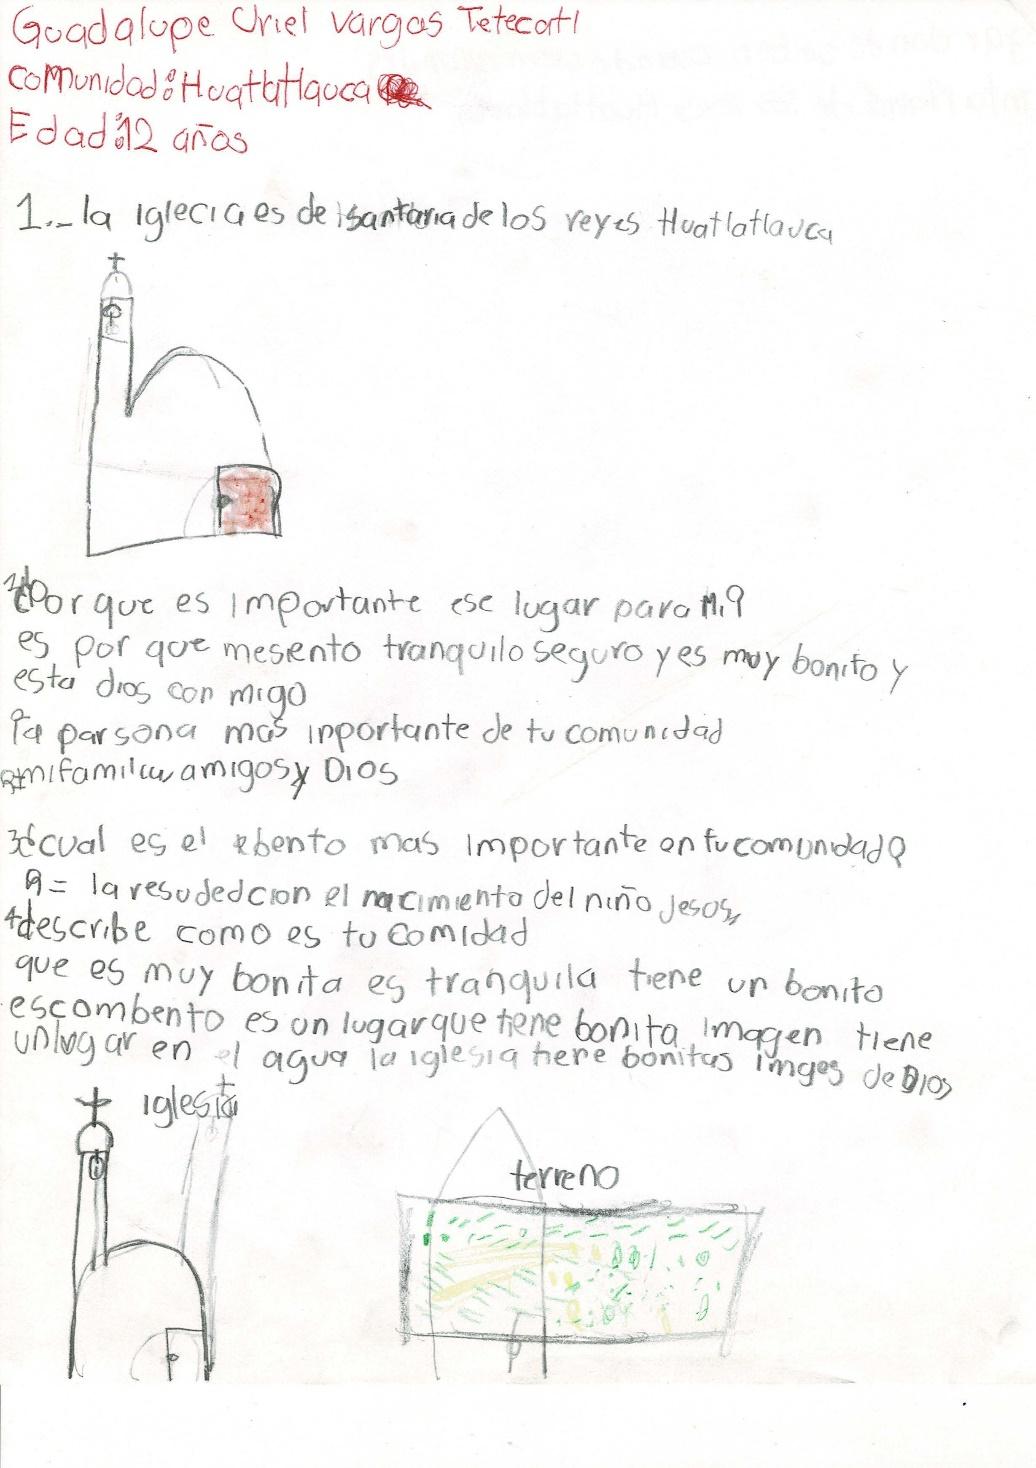 Guadalupe Uriel Vargas Tetecatl
comunidad: Huatlatlauca
Edad: 12 años
1.- la iglecia es de santaria de los reyes Huatlatlauca
2¿Por que es importante ese lugar para Mi?
es por que mesiento tranquilo seguro y es muy bonito y
esta dios con migo
la parsona mas inportante de tu comunidad
R= mi familia, amigos y Dios
3¿cual es el ebento mas importante en tu comunidad?
R= la resudedcion el nacimiento del niño Jesos,
4 describe como es tu comidad
que es muy bonita es tranquila tiene un bonito
escombento es un lugar que tiene bonita imagen tiene
un lugar en el agua la iglesia tiene bonitas imges de Dios
iglesia
terreno